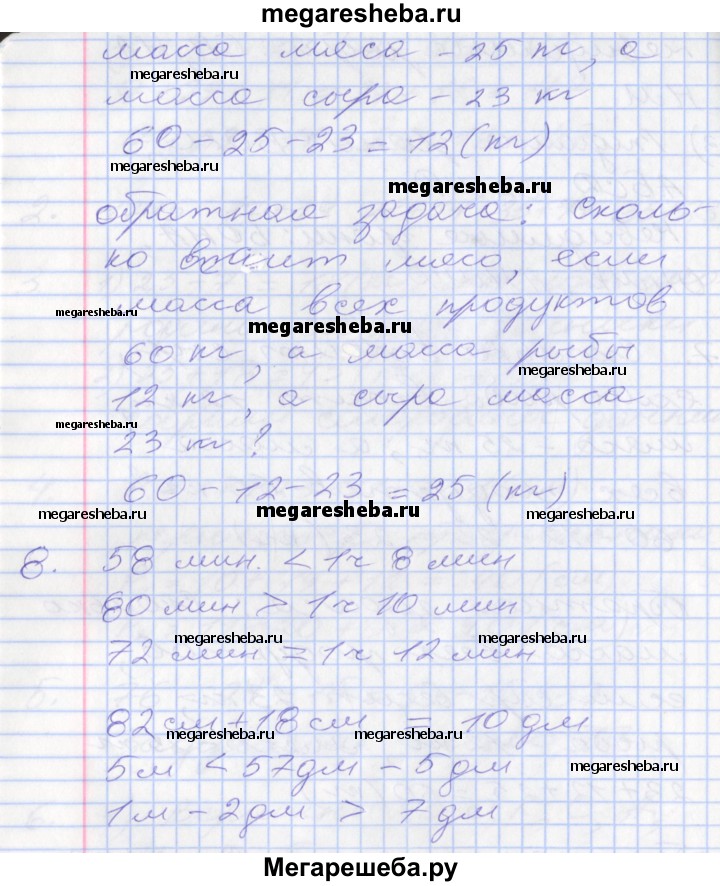 megaresheba.ru
масса мяса - 25 кг, а
megaresheba.ru
масса сыра - 23 кг
60 - 25 - 23 = 12 (кг)
megaresheba.ru
megaresheba.ru
обратная задача: сколь-
ко весит мясо, если
масса всех продуктов
megaresheba.ru
60 кг, а масса рыбы
megaresheba.ru
12 кг, а сыра масса
megaresheba.ru
23 кг?
60 - 12 - 23 = 25 (кг)
megaresheba.ru megaresheba.ru megaresheba.ru
8. 58 мин. < 1 ч 8 мин
80 мин > 1 ч 10 мин
megaresheba.ru megaresheba.ru
72 мин = 1 ч 12 мин
82 см + 18 см = 10 дм
megaresheba.ru megaresheba.ru
5 м < 57 дм - 5 дм
megaresheba.ru
1 м - 2 дм > 7 дм
Мегарешеба.ру